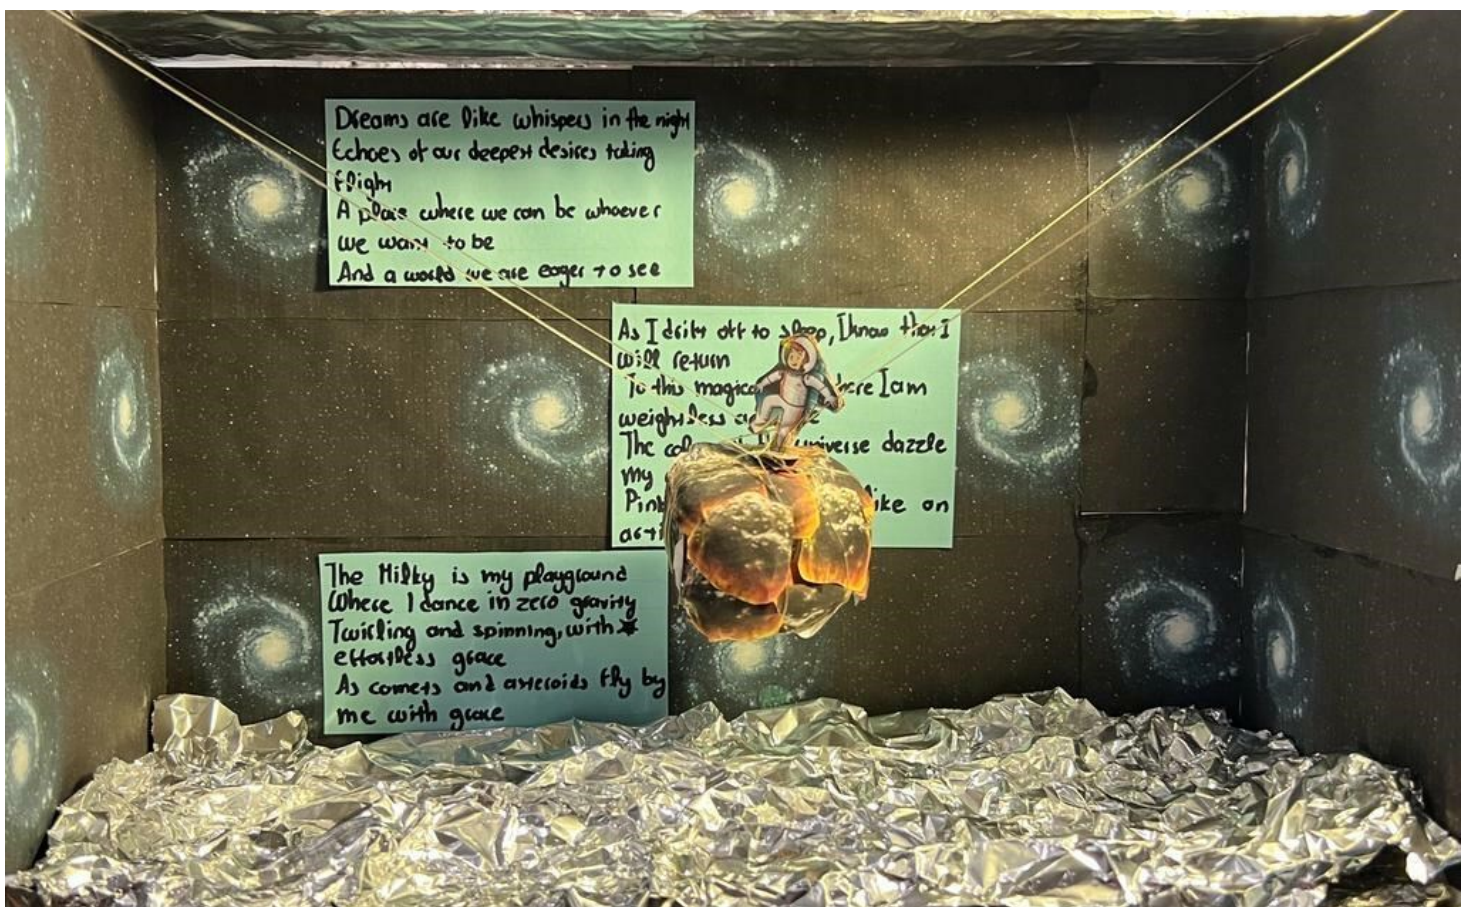 Dreams are like whispers in the night
Echoes of our deepest desires taking
flight
A place where we can be whoever
we want to be
And a world we are eager to see
As I drift off to sleep, I know that I
will return
To this magical here I am
weightless
The universe dazzle
my
Pink like an
The Milky is my playground
Where I dance in zero gravity
Twirling and spinning, with
effortless grace
As comets and asteroids fly by
me with grace